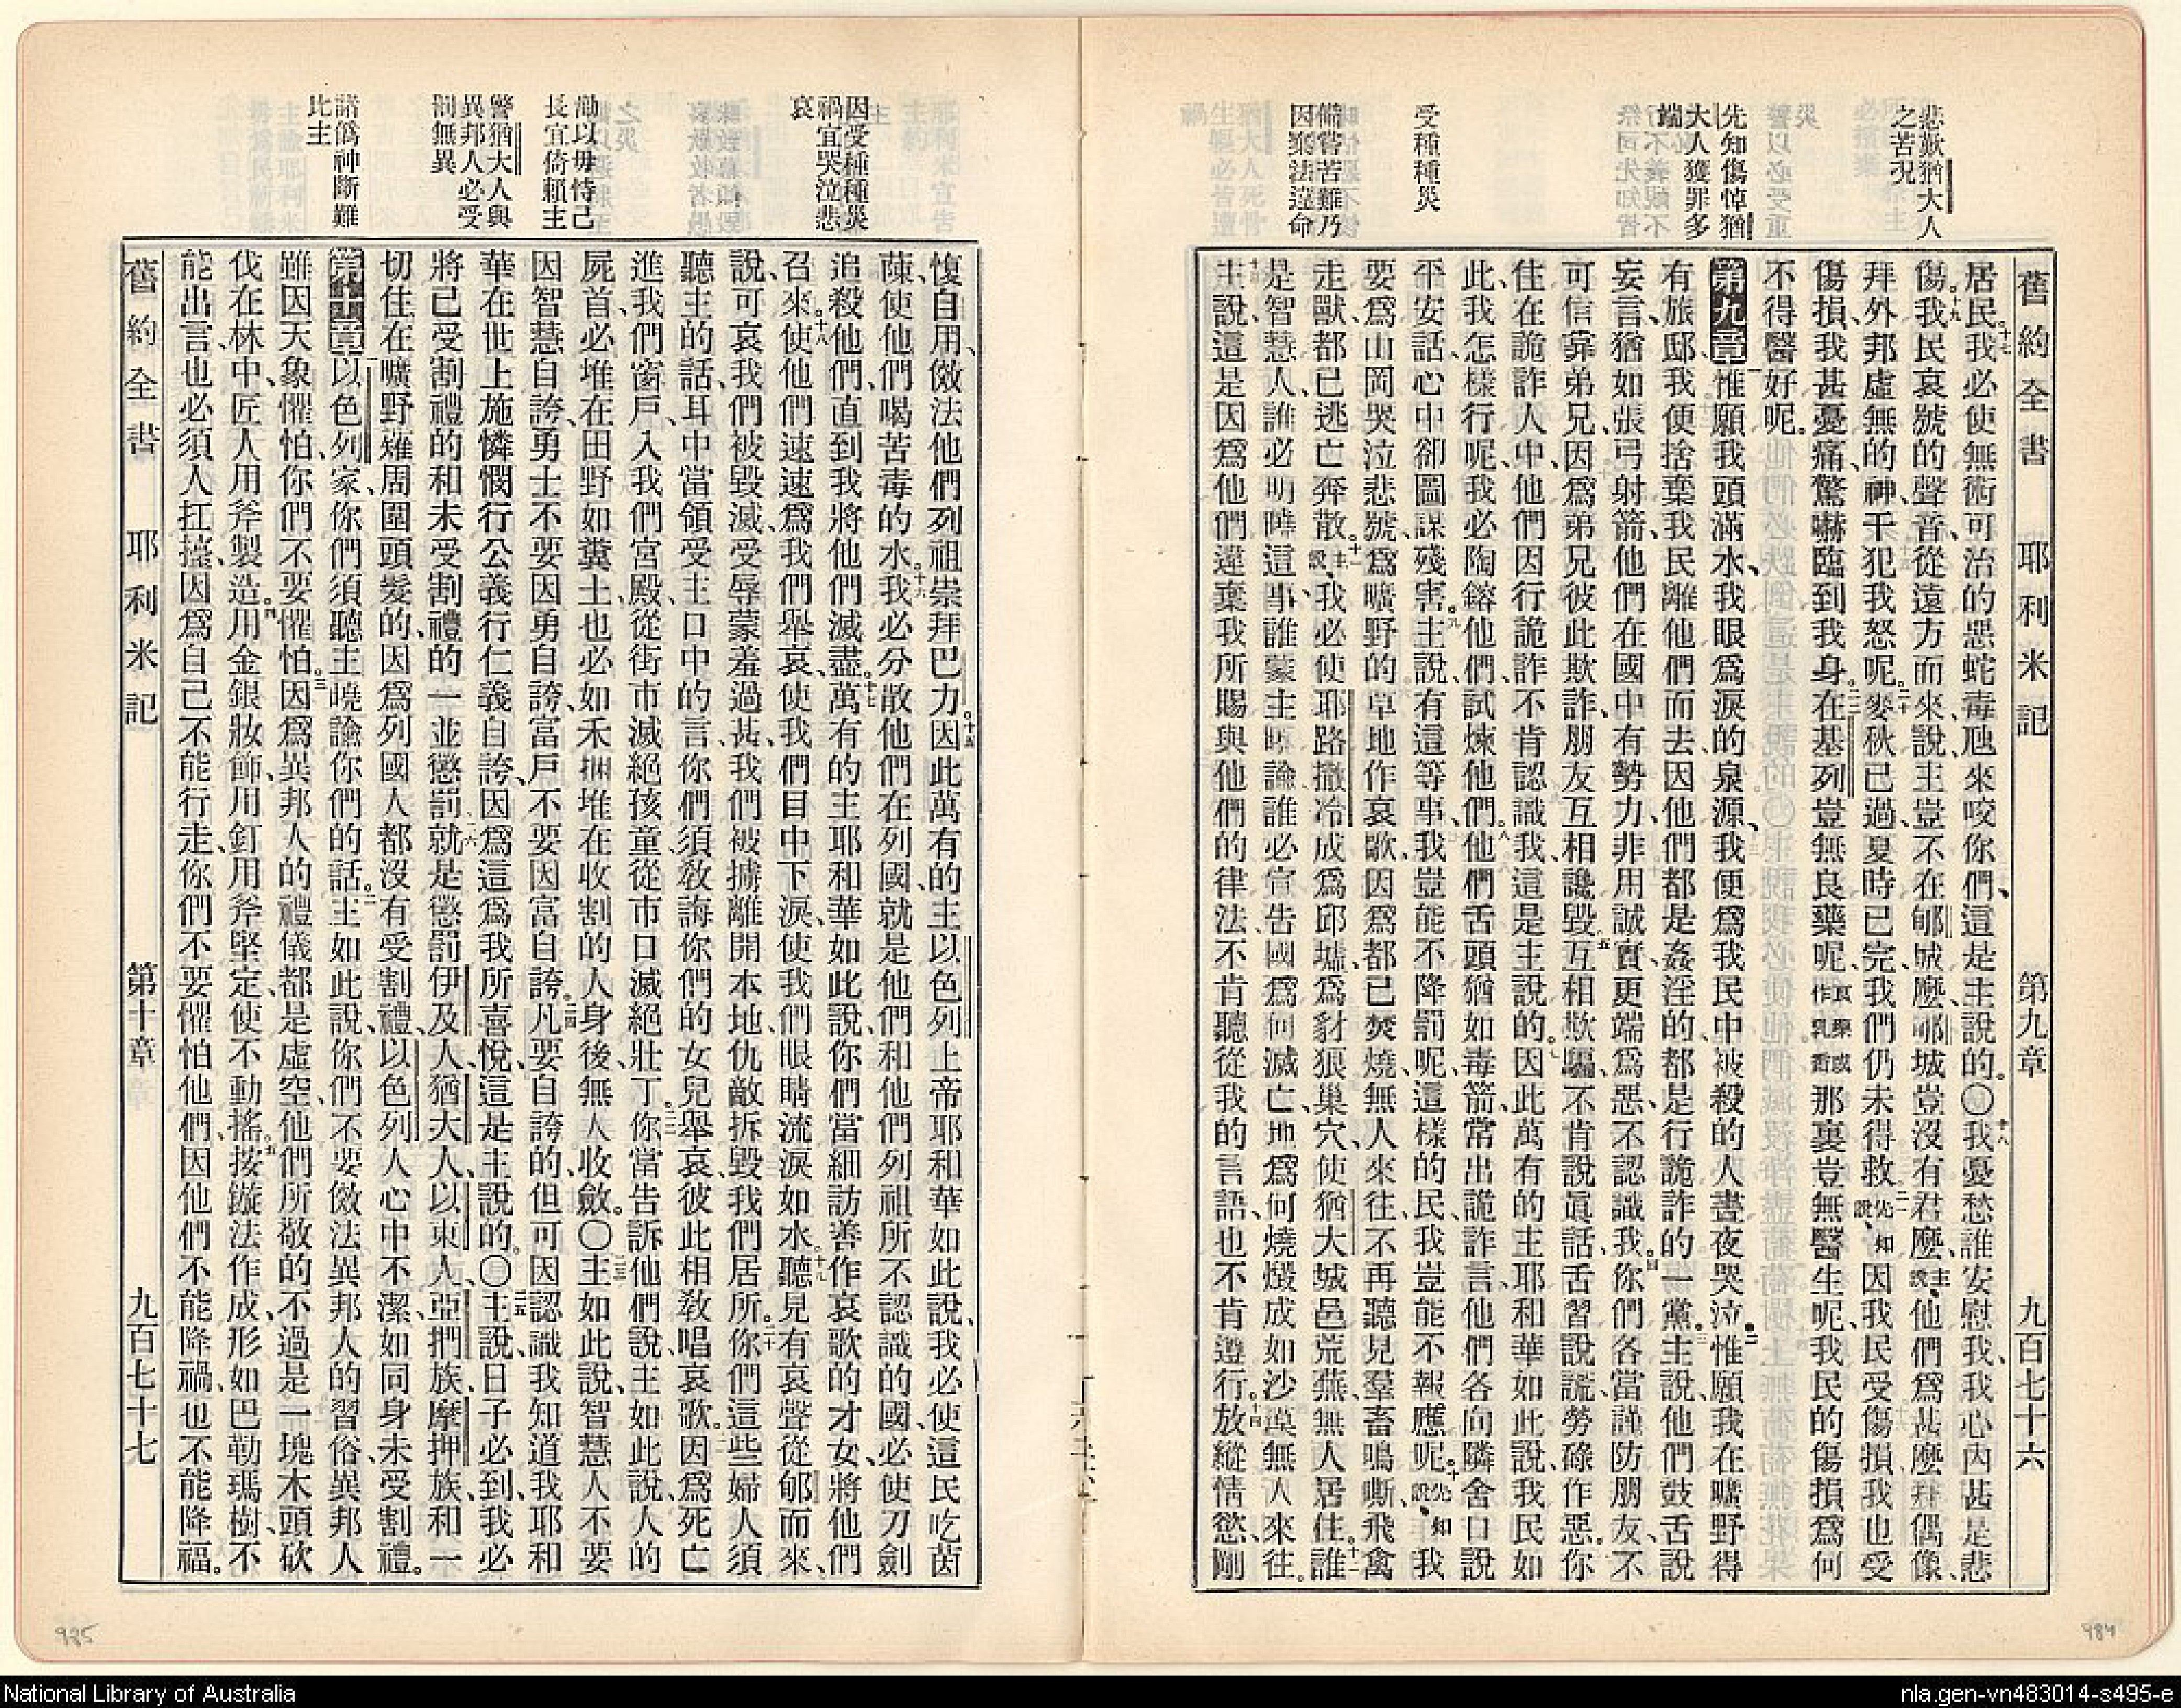 悲歎猶大人
之苦況
先知傷悼猶
大人獲罪多
端
受種種災
備嘗苦難乃
因棄法違命
舊約全書 耶利米記 第九章 九百七十六
居民十七我必使無術可治的惡蛇毒虺來咬你們、這是主說的。〇十八我憂愁誰安慰我、我心內甚是悲
傷十九我民哀號的聲音、從遠方而來、說、主豈不在郇城麽、郇城豈沒有君麽、主說、他們爲甚麽拜偶像、
拜外邦虛無的神、干犯我怒呢。二十麥秋已過、夏時已完、我們仍未得救、二一先知說、因我民受傷損、我也受
傷損、我甚憂痛、驚嚇臨到我身。二二在基列豈無良藥呢、良藥或作乳香那裏豈無醫生呢、我民的傷損爲何
不得醫好呢。
第九章一惟願我頭滿水、我眼爲淚的泉源、我便爲我民中被殺的人晝夜哭泣。二惟願我在曠野得
有旅邸、我便捨棄我民離他們而去、因他們都是姦淫的、都是行詭詐的一黨。三主說、他們鼓舌說
妄言、猶如張弓射箭、他們在國中有勢力、非用誠實、更端爲惡、不認識我。四你們各當謹防朋友、不
可信靠弟兄、因爲弟兄彼此欺詐、朋友互相讒毀、五互相欺騙、不肯說眞話、舌習說謊、勞碌作惡。六你
住在詭詐人中、他們因行詭詐、不肯認識我、這是主說的。七因此萬有的主耶和華如此說、我民如
此、我怎樣行呢、我必陶鎔他們、試煉他們。八他們舌頭猶如毒箭、常出詭詐言、他們各向隣舍口說
平安話、心中卻圖謀殘害。九主說、有這等事、我豈能不降罰呢、這樣的民、我豈能不報應呢。十先知說、我
要爲山岡哭泣悲號、爲曠野的草地作哀歌、因爲都已焚燒、無人來往、不再聽見羣畜鳴嘶、飛禽
走獸、都已逃亡奔散。十一主說、我必使耶路撒冷成爲邱墟、爲豺狼巢穴、使猶大城邑荒蕪、無人居住。十二誰
是智慧人、誰必明曉這事、誰蒙主曉諭、誰必宣吿國爲何滅亡、地爲何燒燬成如沙漠、無人來往。
十三主說、這是因爲他們違棄我所賜與他們的律法、不肯聽從我的言語、也不肯遵行。十四放縱情慾、剛
因受種種災
禍宜哭泣悲
哀
勸以毋恃己
長宜倚賴主
警猶大人與
異邦人必受
罰無異
諸僞神斷難
比主
愎自用、傚法他們列祖崇拜巴力。十五因此萬有的主以色列上帝耶和華如此說、我必使這民吃茵
蔯、使他們喝苦毒的水。十六我必分散他們在列國、就是他們和他們列祖所不認識的國、必使刀劍
追殺他們、直到我將他們滅盡。十七萬有的主耶和華如此說、你們當細訪善作哀歌的才女、將他們
召來。十八使他們速速爲我們舉哀、使我們目中下淚、使我們眼睛流淚如水。十九聽見有哀聲從郇而來、
說、可哀我們被毀滅、受辱蒙羞過甚、我們被擄離開本地、仇敵拆毀我們居所。二十你們這些婦人須
聽主的話、耳中當領受主口中的言、你們須敎誨你們的女兒舉哀、彼此相敎唱哀歌。二一因爲死亡
進我們窗戶、入我們宮殿、從街市滅絕孩童、從市口滅絕壯丁。二二你當告訴他們說、主如此說、人的
屍首必堆在田野如糞土、也必如禾捆堆在收割的人身後、無人收斂。〇二三主如此說、智慧人不要
因智慧自誇、勇士不要因勇自誇、富戶不要因富自誇。二四凡要自誇的、但可因認識我、知道我耶和
華在世上施憐憫行公義行仁義自誇、因爲這爲我所喜悅、這是主說的。〇二五主說、日子必到、我必
將已受割禮的和未受割禮的一並懲罰、二六就是懲罰伊及人、猶大人、以東人、亞捫族、摩押族、和一
切住在曠野薙周圍頭髮的、因爲列國人都沒有受割禮、以色列人心中不潔、如同身未受割禮。
第十章一以色列家、你們須聽主曉諭你們的話。二主如此說、你們不要傚法異邦人的習俗、異邦人
雖因天象懼怕、你們不要懼怕。三因爲異邦人的禮儀都是虛空、他們所敬的不過是一塊木頭、砍
伐在林中、匠人用斧製造。四用金銀妝飾、用釘用斧堅定、使不動搖。五按鏇法作成、形如巴勒瑪樹、不
能出言、也必須人扛擡、因爲自己不能行走、你們不要懼怕他們、因他們不能降禍、也不能降福。
舊約全書 耶利米記 第十章 九百七十七
985
984
National Library of Australia
nla.gen-vn483014-s495-e